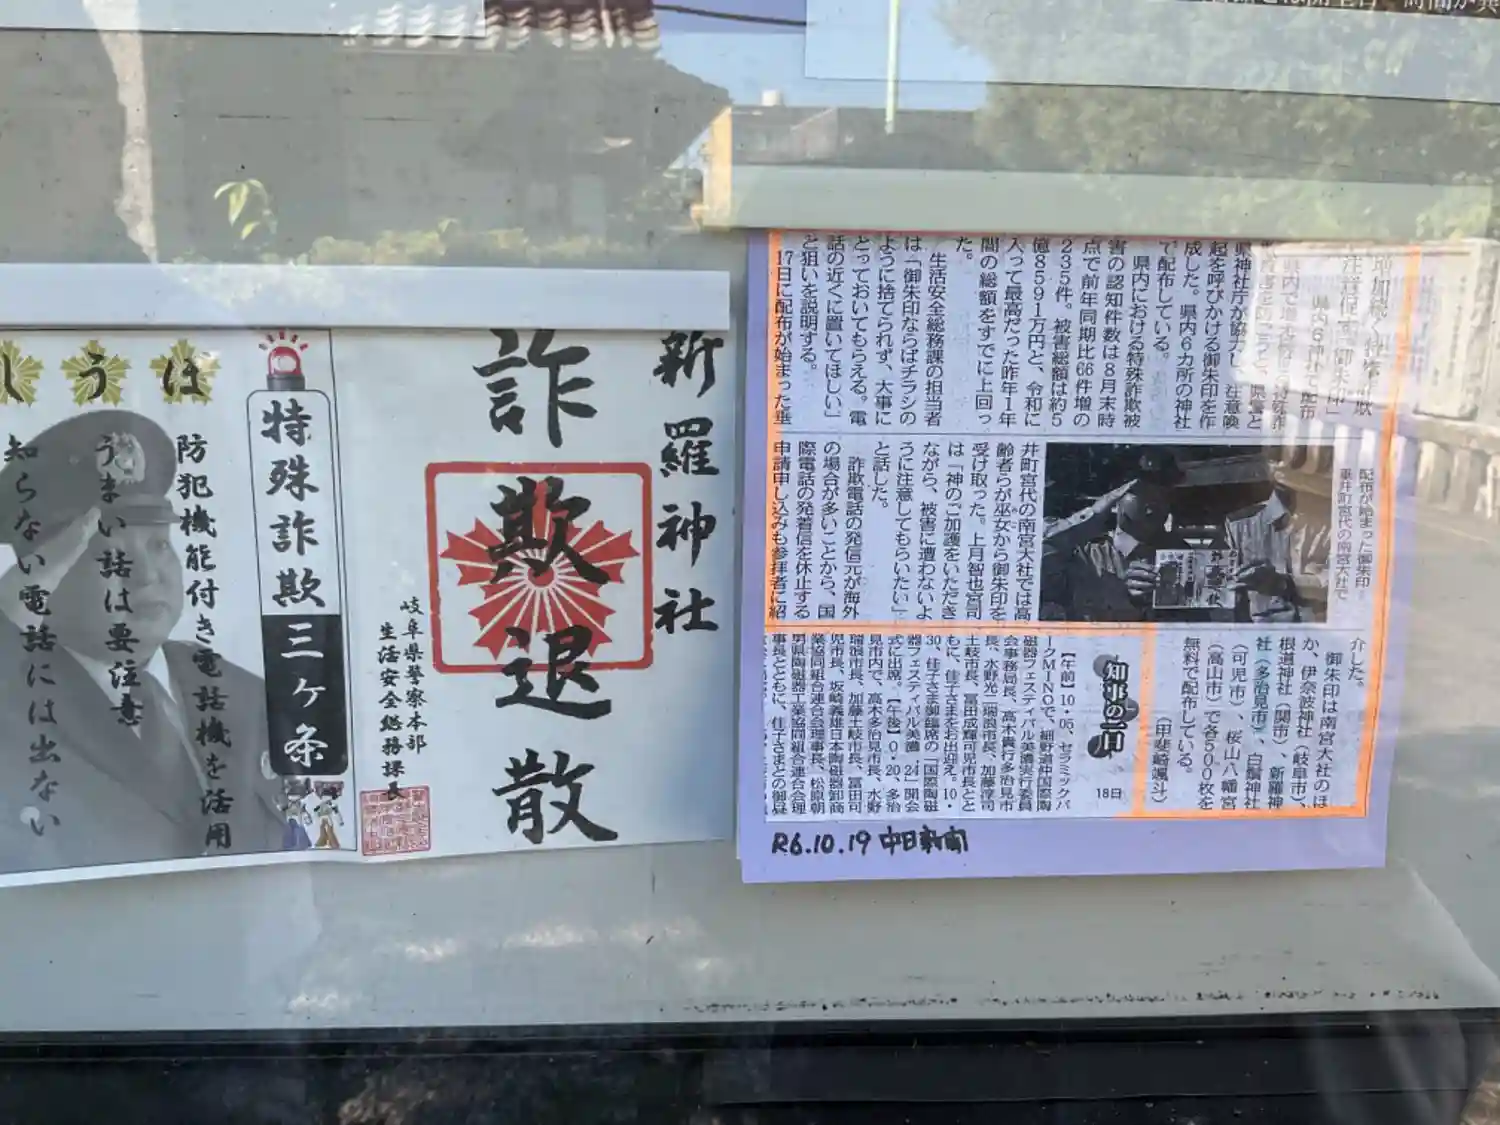 新羅神社
詐欺退散
岐阜県警察本部
生活安全総務課長
特殊詐欺
三ヶ条
ほ
う
し
防犯機能付き電話機を活用
うまい話は要注意
知らない電話には出ない
増加続く特殊詐欺
注意促す「御朱印」
県内6神社で配布
県神社庁が協力し、注意喚
起を呼びかける御朱印を作
成した。県内6カ所の神社
で配布している。
県内における特殊詐欺被
害の認知件数は8月末時
点で前年同期比66件増の
235件。被害総額は約5
億8591万円と、令和に
入って最高だった昨年1年
間の総額をすでに上回っ
た。
生活安全総務課の担当者
は「御朱印ならばチラシの
ように捨てられず、大事に
とっておいてもらえる。電
話の近くに置いてほしい」
と狙いを説明する。
17日に配布が始まった垂
井町宮代の南宮大社では高
齢者らが巫女から御朱印を
受け取った。上月智也宮司
は「神のご加護をいただき
ながら、被害に遭わないよ
うに注意してもらいたい」
と話した。
詐欺電話の発信元が海外
の場合が多いことから、国
際電話の発着信を休止する
申請申し込みも参拝者に紹
介した。
御朱印は南宮大社のほ
か、伊奈波神社(岐阜市)、
根道神社(関市)、新羅神
社(多治見市)、白鬚神社
(可児市)、桜山八幡宮
(高山市)で各500枚を
無料で配布している。
(甲斐崎颯斗)
配布が始まった御朱印=
垂井町宮代の南宮大社で
知事の一日
18日
【午前】10・05、セラミックパ
ークMINOで、細野道仲国際陶
磁器フェスティバル美濃実行委員
会事務局長、高木貴行多治見市
長、水野光二瑞浪市長、加藤淳司
土岐市長、冨田成輝可児市長とと
もに、佳子さまをお出迎え。10・
30、佳子さま御臨席の「国際陶磁
器フェスティバル美濃'24」開会
式に出席。【午後】0・20、多治
見市内で、高木多治見市長、水野
瑞浪市長、加藤土岐市長、冨田可
児市長、坂崎義雄日本陶磁器卸商
業協同組合連合会理事長、松原朝
男県陶磁器工業協同組合連合会理
事長とともに、佳子さまとの御昼
R6.10.19 中日新聞